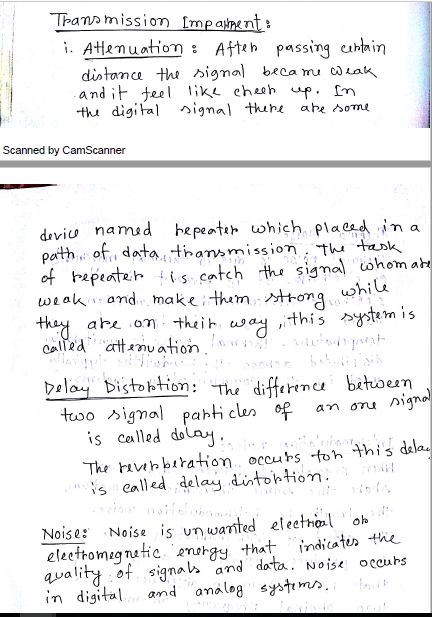 Transmission Impairment:
i. Attenuation: After passing certain
distance the signal became weak
and it feel like cheer up. In
the digital signal there are some
Scanned by CamScanner
device named repeater which placed in a
path of data transmission. The task
of repeater is catch the signal whom are
weak and make them strong while
they are on their way, this system is
called attenuation.
Delay Distortion: The difference between
two signal particles of an one signal
is called delay.
The reverberation occurs for this delay
is called delay distortion.
Noise: Noise is unwanted electrical or
electromegnetic energy that indicates the
quality of signals and data. Noise occurs
in digital and analog systems.